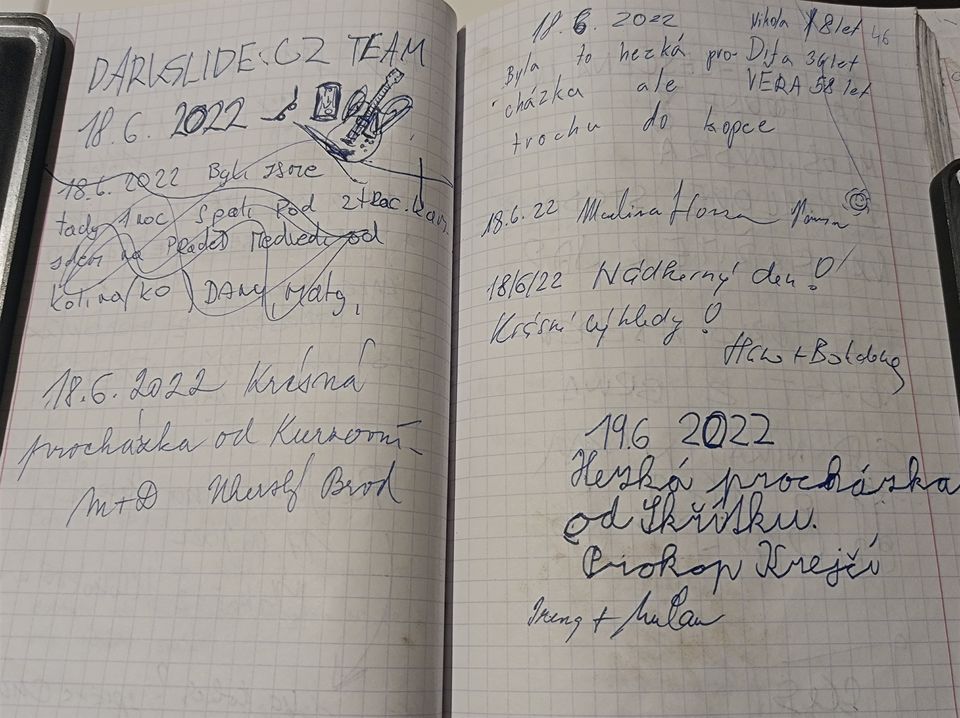 DARKSLIDE.CZ TEAM
18.6. 2022
18.6. 2022 Byli jsme
tady 1 noc spali Pod
jdem na Praděd Medvědi od
Kolina/KO DANY, Maty,
18.6.2022 Krásná
procházka od Kurzovní
M+D Uherský Brod
18.6 2022 Nikola 18let 46
Byla to hezká pro- Dita 39let
cházka ale VĚRA 58 let
trochu do kopce
18.6.22
18/6/22 Nádherný den!
Krásné výhledy!
19.6 2022
Hezká procházka
od Skřítku.
Prokop Krejčí
Irena + Milan